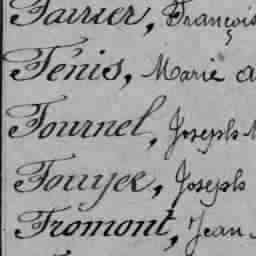 Farrier, François
Fénis, Marie a
Fournel, Joseph M
Fouyee, Joseph
Fromont, Jean